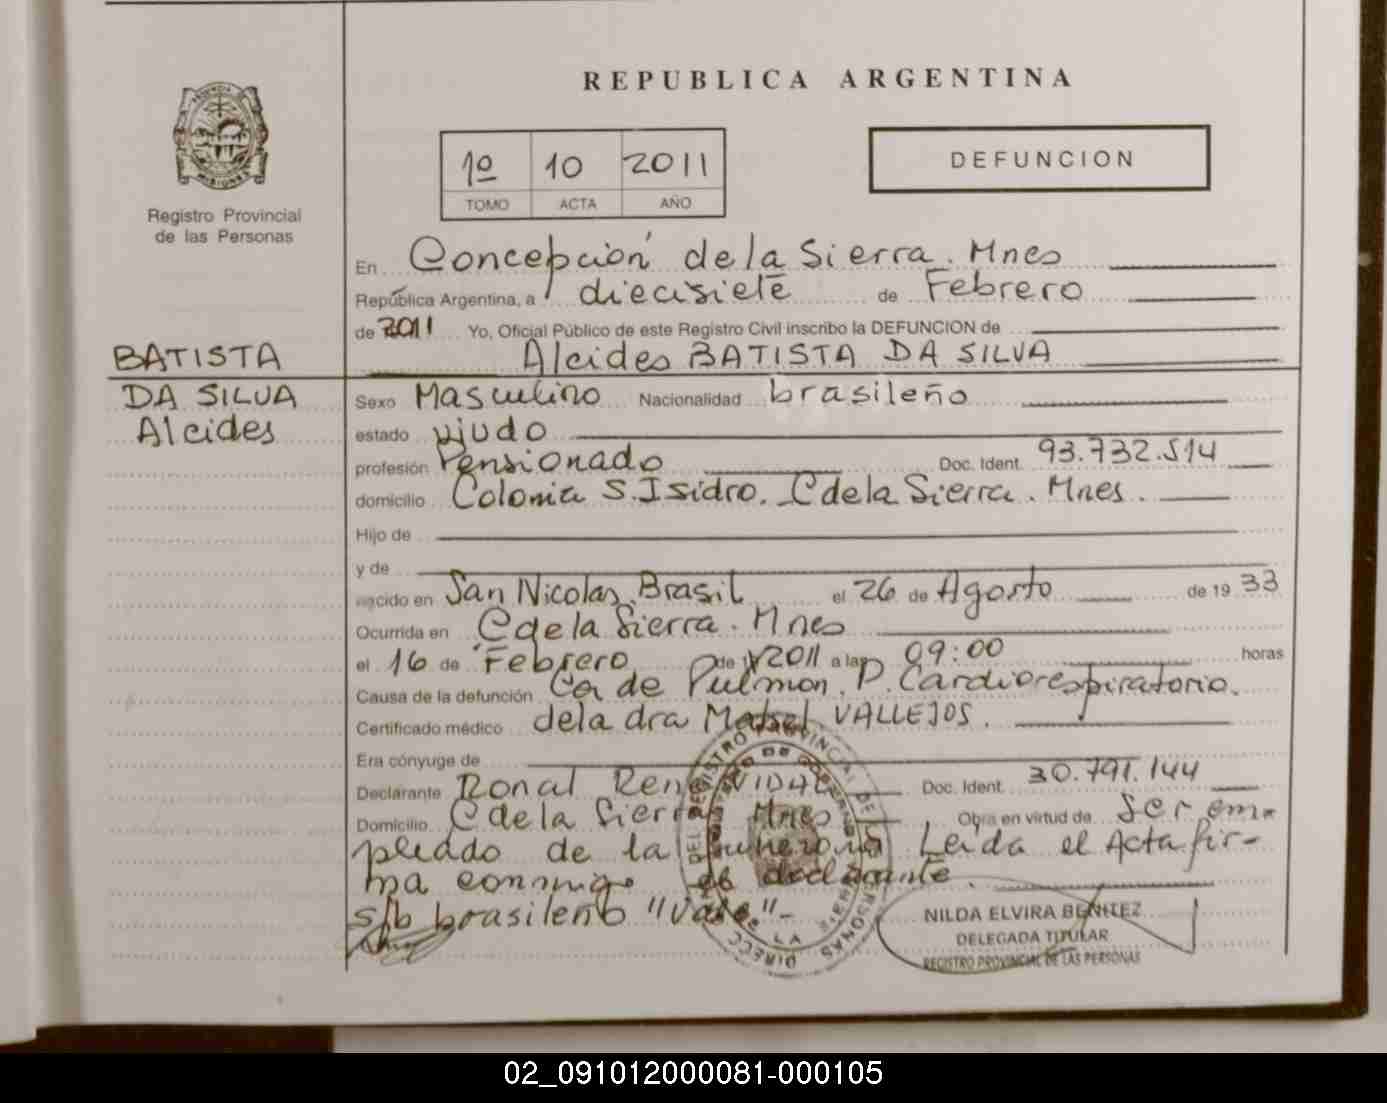 REPUBLICA ARGENTINA
1º 10 2011
TOMO ACTA AÑO
DEFUNCION
PROVINCIA DE
MISIONES
Registro Provincial
de las Personas
BATISTA
DA SILVA
Alcides
En Concepción de la Sierra. Mnes
República Argentina, a diecisiete de Febrero
de 2011 Yo, Oficial Público de este Registro Civil inscribo la DEFUNCION de
Alcides BATISTA DA SILVA
Sexo Masculino Nacionalidad brasileño
estado viudo
profesión Pensionado Doc. Ident. 93.732.514
domicilio Colonia S. Isidro. C de la Sierra. Mnes.
Hijo de
y de
nacido en San Nicolas, Brasil el 26 de Agosto de 19 33
Ocurrida en C de la Sierra. Mnes
el 16 de Febrero de 2011 a las 09:00 horas
Causa de la defunción Ca de Pulmon, P. Cardiorespiratorio.
Certificado médico de la dra VALLEJOS.
Era cónyuge de
Declarante Ronal Rene VIDAL Doc. Ident. 30.791.144
Domicilio C de la Sierra Mnes Obra en virtud de Ser em-
pleado de la funeraria Leida el Acta fir-
ma conmigo el declarante.
s/b brasileño "Vale"-
DIRECC DEL REGISTRO PROVINCIAL DE LAS PERSONAS
NILDA ELVIRA BENITEZ
DELEGADA TITULAR
REGISTRO PROVINCIAL DE LAS PERSONAS
02_091012000081-000105